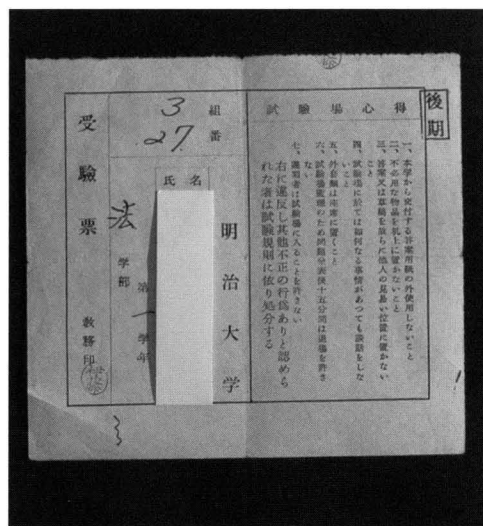 後期
試験場心得
一、本学から交付する答案用紙の外使用しないこと
二、不必用な物品を机上に置かないこと
三、答案又は草稿を故らに他人の見易い位置に置かない
こと
四、試験場に於ては如何なる事情があつても談話をしな
いこと
五、外套類は座席に置くこと
六、試験場整理のため問題分表後十五分間は退場を許さ
ない
七、遅刻者は試験場に入ることを許さない
右に違反し其他不正の行為ありと認めら
れた者は試験規則に依り処分する
明治大学
3組
27番
氏名
法学部
第一学年
受験票
教務印